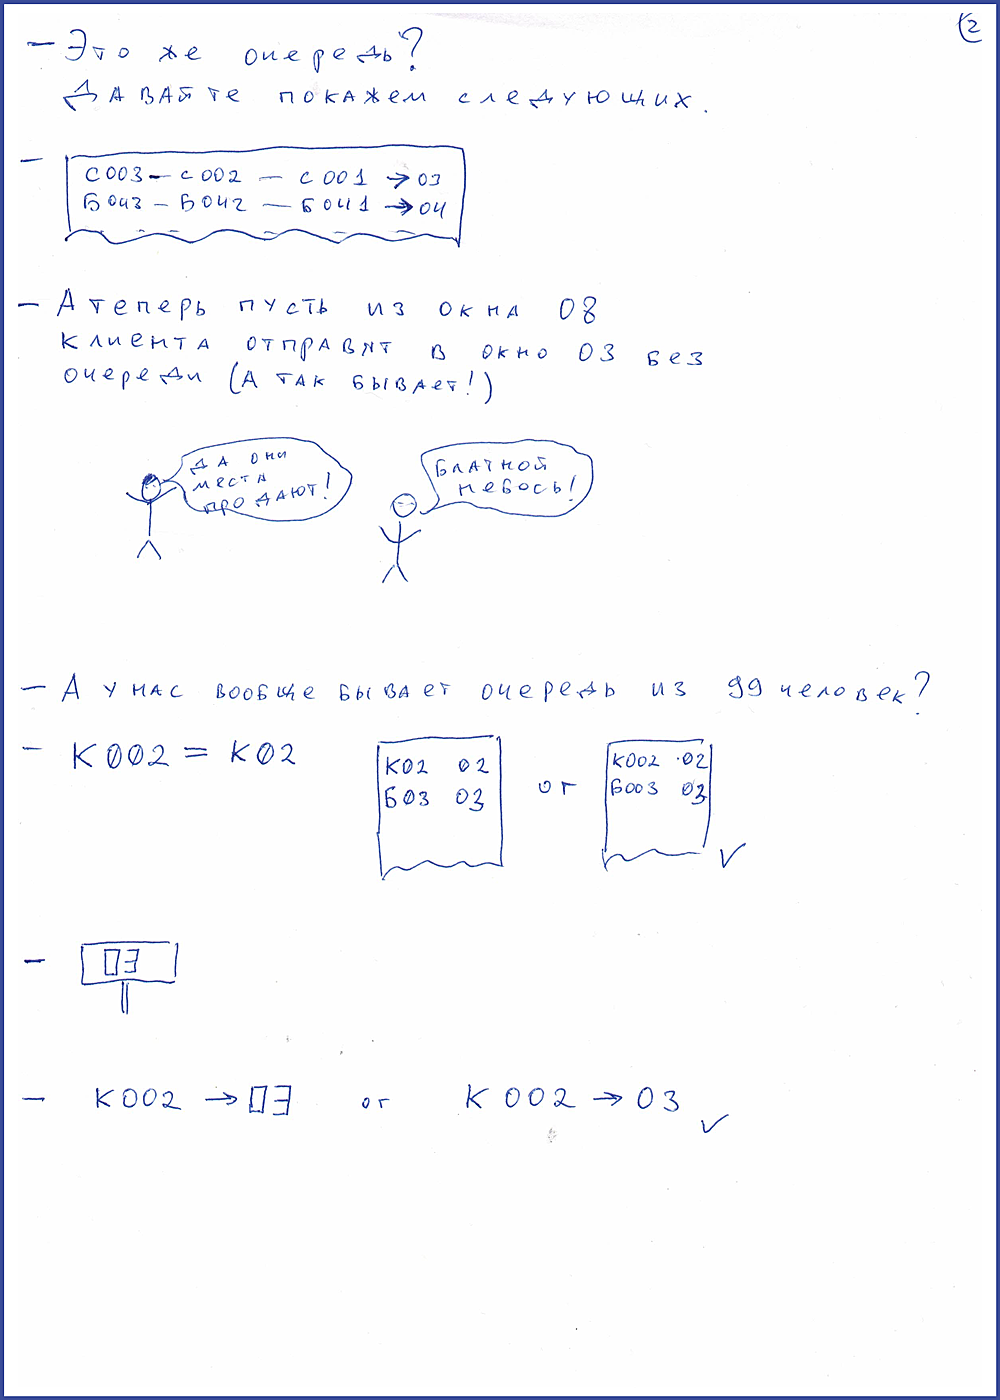 2
— Это же очередь?
Давайте покажем следующих.
—
С003 — С002 — С001 → 03
Б043 — Б042 — Б041 → 04
— А теперь пусть из окна 08
клиента отправят в окно 03 без
очереди (А так бывает!)
Да они
места
продают!
Блатной
небось!
— А у нас вообще бывает очередь из 99 человек?
— К002 = К02
К02 02
Б03 03
or
К002 02
Б003 03
— 03
— К002 → 03 or К002 → 03